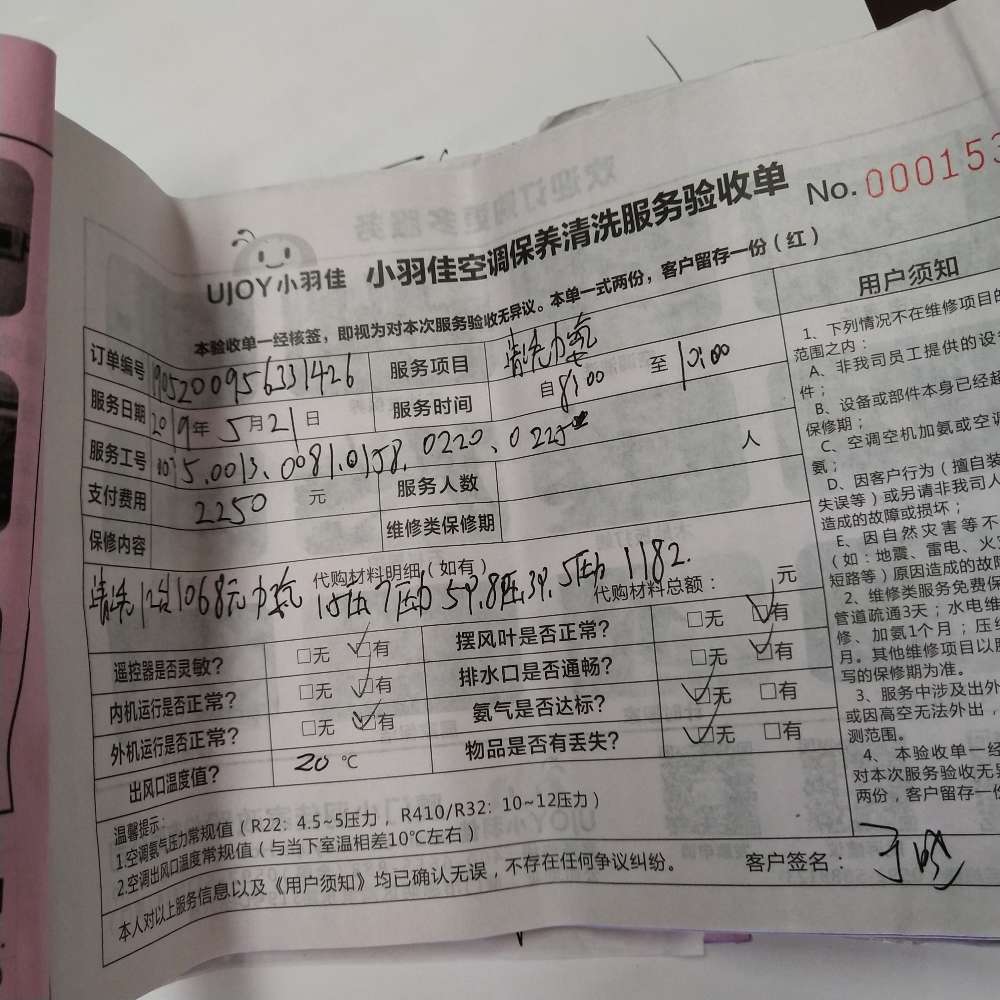 No. 000153
UJOY小羽佳 小羽佳空调保养清洗服务验收单
本验收单一经核签，即视为对本次服务验收无异议。本单一式两份，客户留存一份（红）
订单编号 1905200956331426 服务项目 清洗加氨
服务日期 2019年5月21日 服务时间 自8:00 至10:00
服务工号 5.0013.0081.0158.0220、0225
支付费用 2250 元 服务人数 人
保修内容 维修类保修期
代购材料明细（如有） 代购材料总额： 元
清洗12台1068元
1182.
遥控器是否灵敏？ □无 □有 摆风叶是否正常？ □无 □有
内机运行是否正常？ □无 □有 排水口是否通畅？ □无 □有
外机运行是否正常？ □无 □有 氨气是否达标？ □无 □有
出风口温度值？ 20 ℃ 物品是否有丢失？ □无 □有
温馨提示：
1.空调氨气压力常规值（R22：4.5~5压力，R410/R32：10~12压力）
2.空调出风口温度常规值（与当下室温相差10℃左右）
本人对以上服务信息以及《用户须知》均已确认无误，不存在任何争议纠纷。 客户签名：
用户须知
1、下列情况不在维修项目的
范围之内：
A、非我司员工提供的设
件；
B、设备或部件本身已经超
保修期；
C、空调空机加氨或空调
氨；
D、因客户行为（擅自装
失误等）或另请非我司人
造成的故障或损坏；
E、因自然灾害等不
（如：地震、雷电、火
短路等）原因造成的故障
2、维修类服务免费保
管道疏通3天；水电维
修、加氨1个月；压缩
月。其他维修项目以
写的保修期为准。
3、服务中涉及出外
或因高空无法外出，
测范围。
4、本验收单一经
对本次服务验收无异
两份，客户留存一份